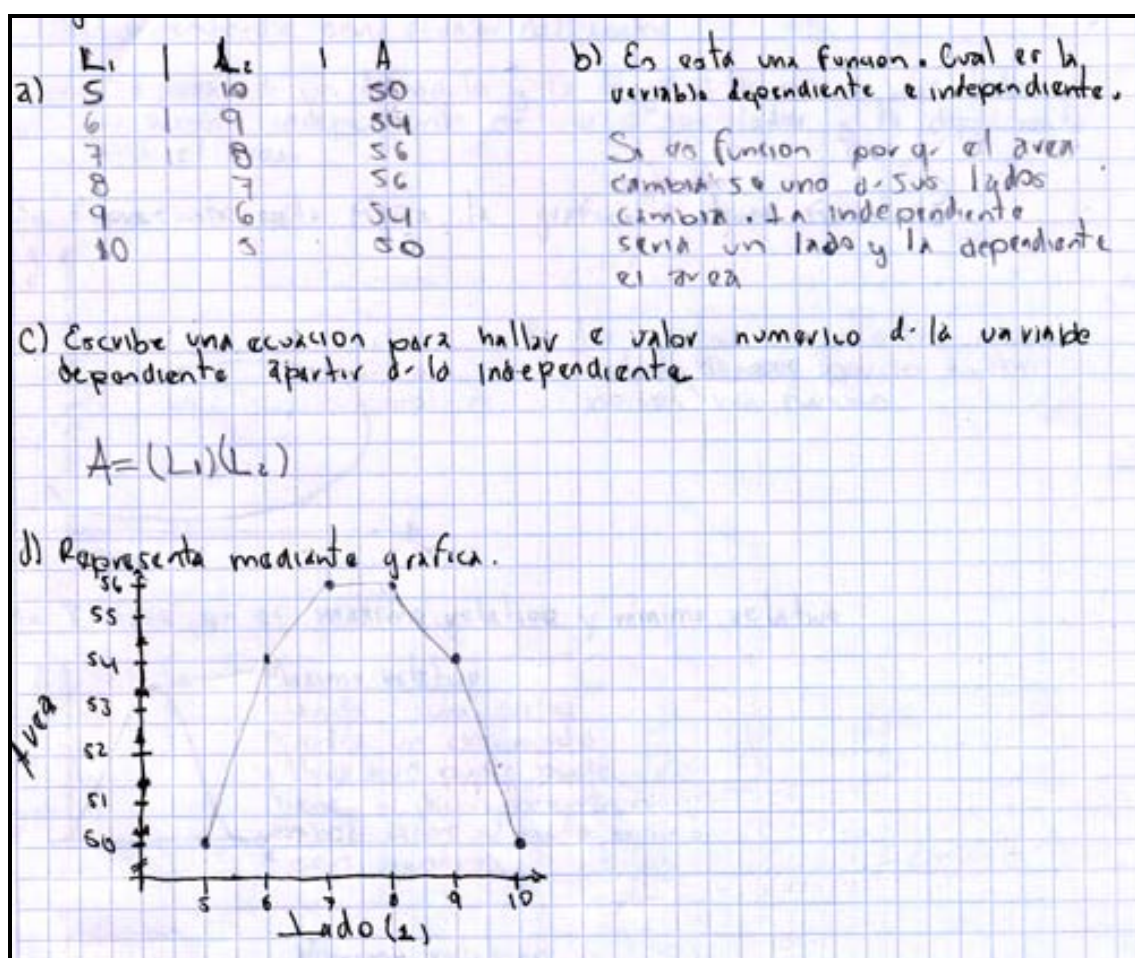 L₁ | L₂ | A
a) 5 10 50
6 9 54
7 8 56
8 7 56
9 6 54
10 5 50
b) Es está una funcion. Cual es la
variable dependiente e independiente.
Si es funcion por q. el area
cambia se uno d. sus lados
cambia. La independiente
seria un lado y la dependiente
el area
c) Escribe una ecuacion para hallar e valor numerico d. la variable
dependiente apartir d. la independiente
A=(L₁)(L₂)
d) Representa mediante grafica.
56
55
54
53
52
51
50
Area
5 6 7 8 9 10
Lado (1)